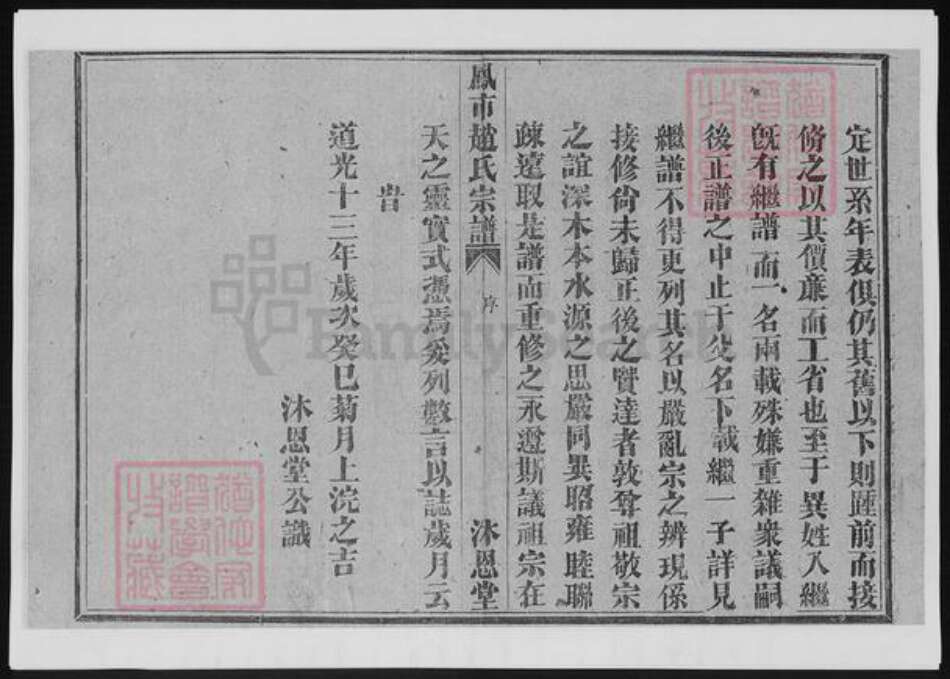 定世系年表俱仍其舊以下則踵前而接
脩之以其價亷而工省也至于異姓入繼
旣有繼譜而一名兩載殊嫌重雜衆議嗣
後正譜之中止于父名下載繼一子詳見
繼譜不得更列其名以嚴亂宗之辨現係
接修尙未歸正後之賢達者敦尊祖敬宗
之誼深木本水源之思嚴同異昭雍睦聯
疎遠取是譜而重修之永遵斯議祖宗在
鳳市趙氏宗譜 序 沐恩堂
天之靈實式憑焉爰列數言以誌歲月云
旹
道光十三年歲次癸巳菊月上浣之吉
沐恩堂公識
FamilySearch